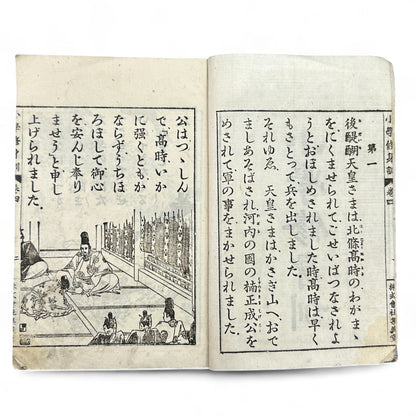 卷四
第一
後醍醐天皇さまは、北條高時のわがまゝ
をにくませられて、ごせいばつなされよ
うとおぼしめされました。時高時は早く
もさとつて兵を出しました。
それゆゑ 天皇さまはかさぎ山へ、おで
ましあそばされ、河内の國の楠正成公を
めされて、軍の事をまかせられました。
公はつゝしん
で「高時、いか
に强くともか
ならずうちほ
ろぼして、御心
を安んじ奉り
ませう」と申し
上げられました。
卷四
二